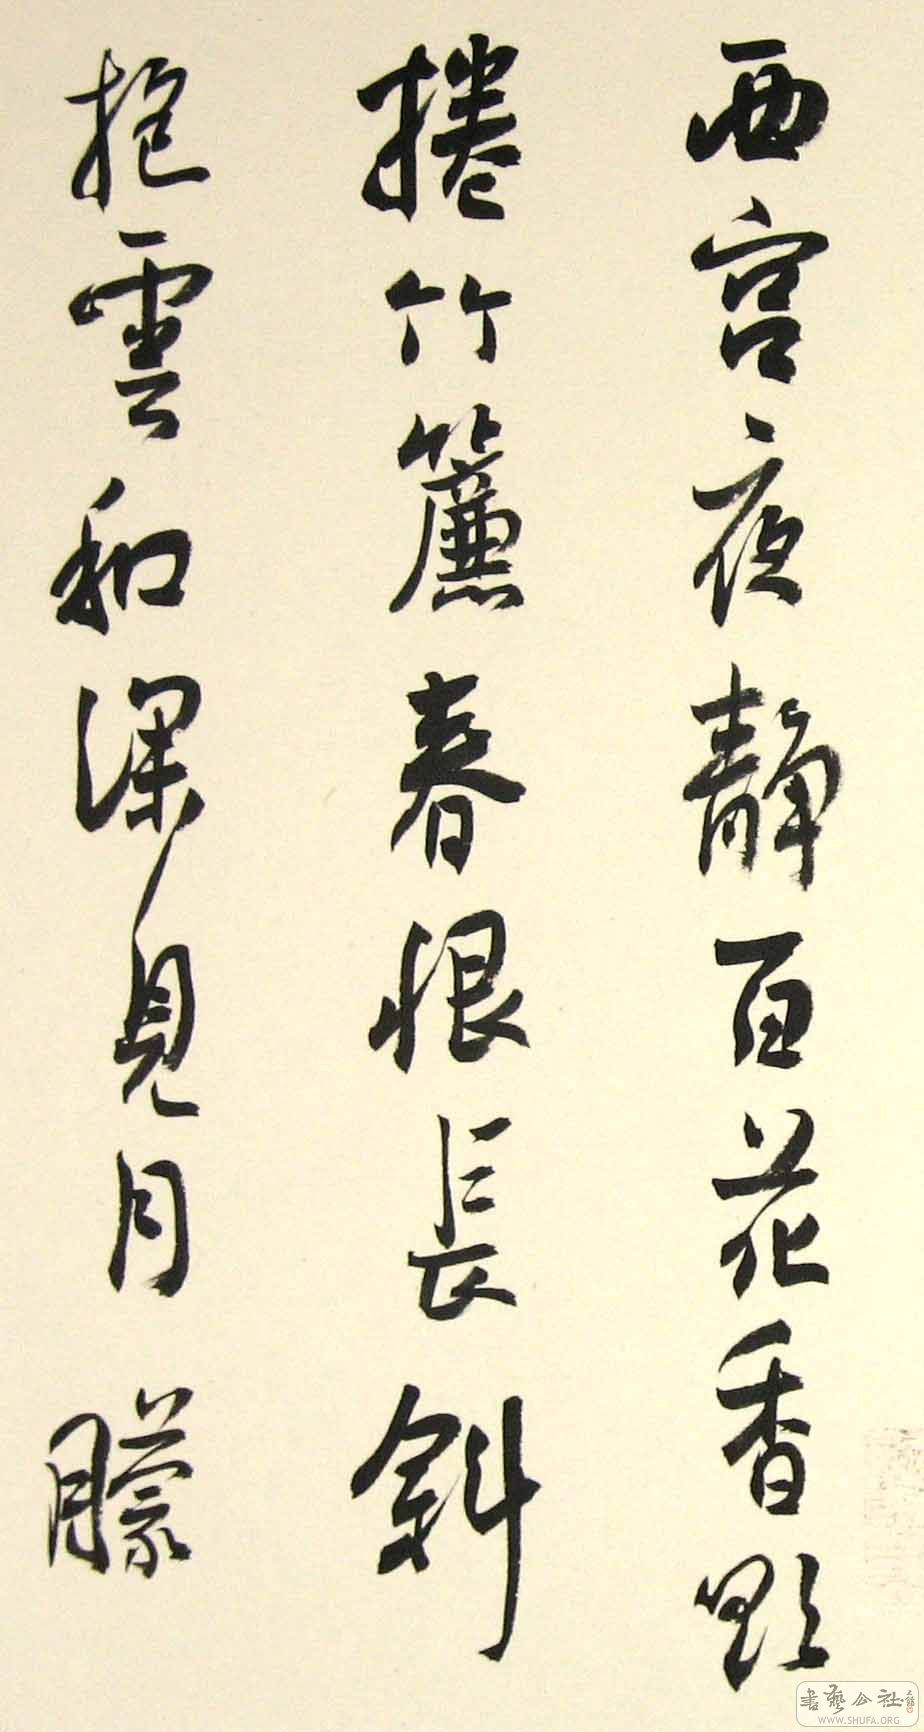 西宮夜靜百花香欲
捲竹簾春恨長斜
抱雲和深見月朦
書藝公社
WWW.SHUFA.ORG